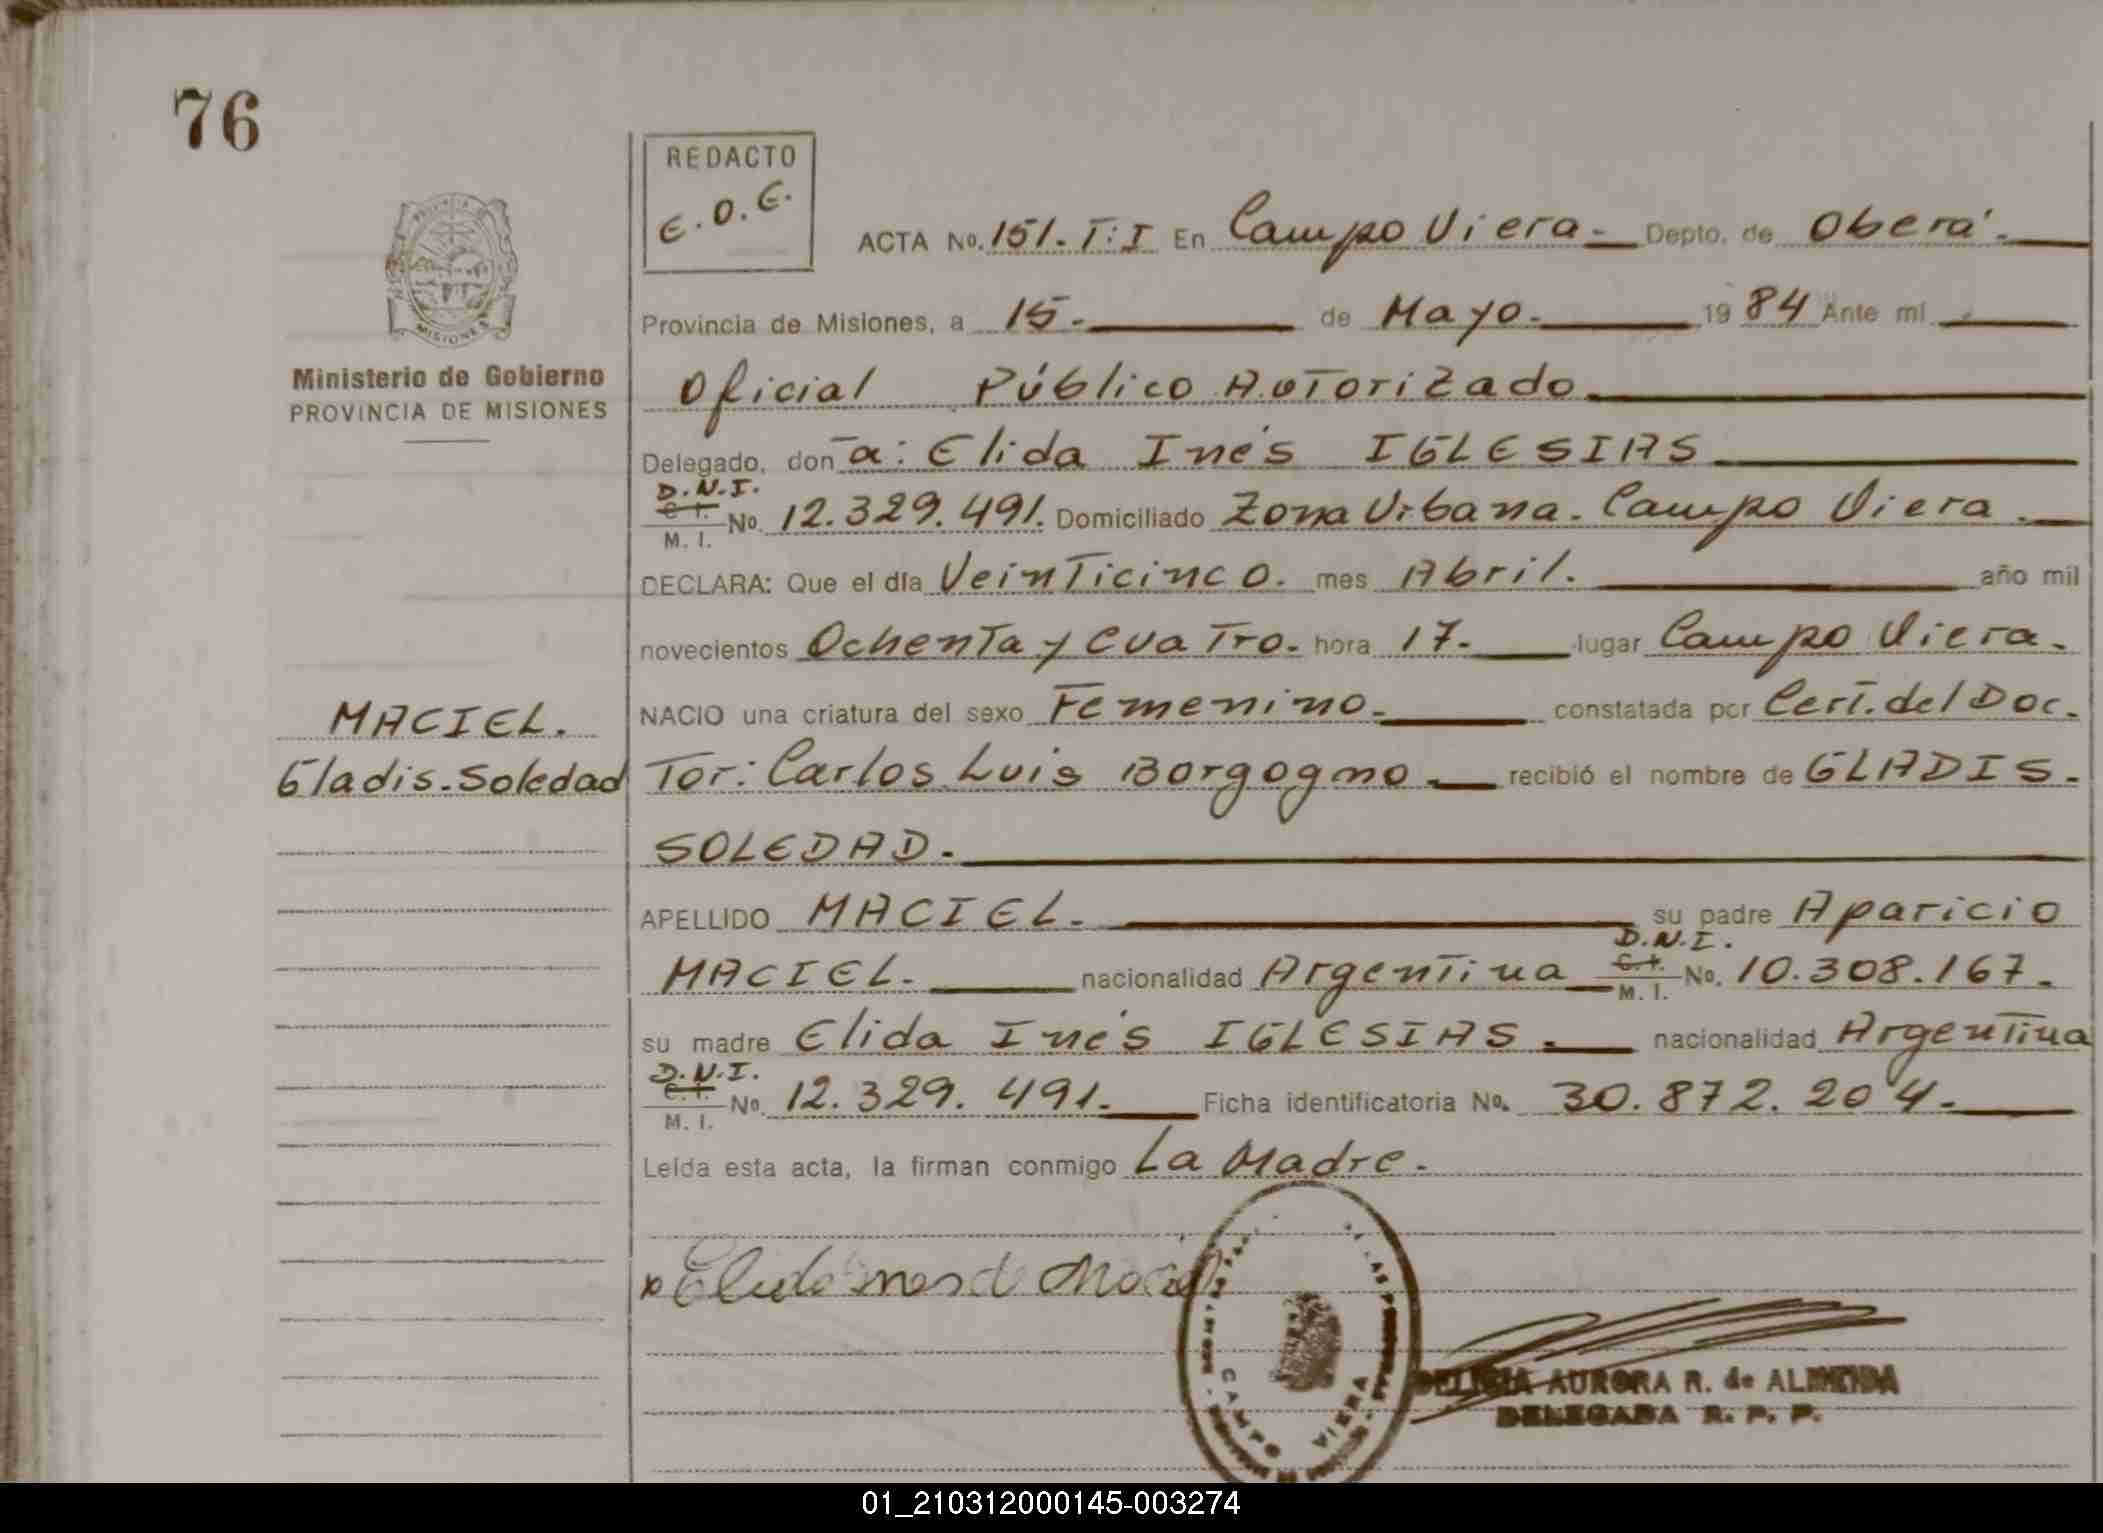 76
REDACTO
E.O.E.
ACTA No. 151. T: I En Campo Viera.- Depto. de Oberá.
PROVINCIA DE MISIONES
Provincia de Misiones, a 15.- de Mayo. 1984 Ante mí
Ministerio de Gobierno
PROVINCIA DE MISIONES
Oficial Público Autorizado
Delegado, don a: Elida Inés IGLESIAS
D.N.I.
C.I. No. 12.329.491. Domiciliado Zona Urbana. Campo Viera.
M. I.
DECLARA: Que el día Veinticinco. mes Abril. año mil
novecientos Ochenta y Cuatro. hora 17. lugar Campo Viera.
NACIO una criatura del sexo Femenino. constatada por Cert. del Doc.
MACIEL.
Gladis-Soledad
Tor: Carlos Luis Borgogno. recibió el nombre de GLADIS.
SOLEDAD.
APELLIDO MACIEL. su padre Aparicio
D.N.I.
MACIEL. nacionalidad Argentina C.I. No. 10.308.167.
M. I.
su madre Elida Inés IGLESIAS. nacionalidad Argentina
D.N.I.
C.I. No. 12.329.491. Ficha identificatoria No. 30.872.204.
M. I.
Leída esta acta, la firman conmigo La Madre.
CAMPO VIERA
AURORA R. de ALMEIDA
DELEGADA R. P. P.
01_210312000145-003274